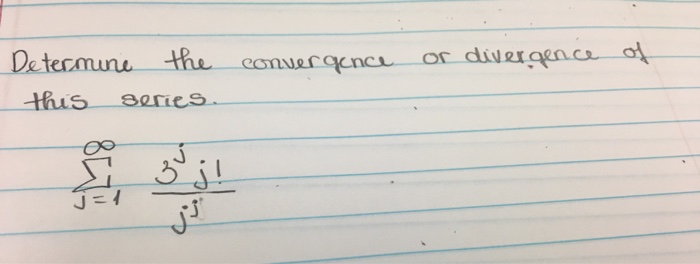 Determine the convergence or divergence of
this series.
∞
Σ 3^j j!
j=1 j^j